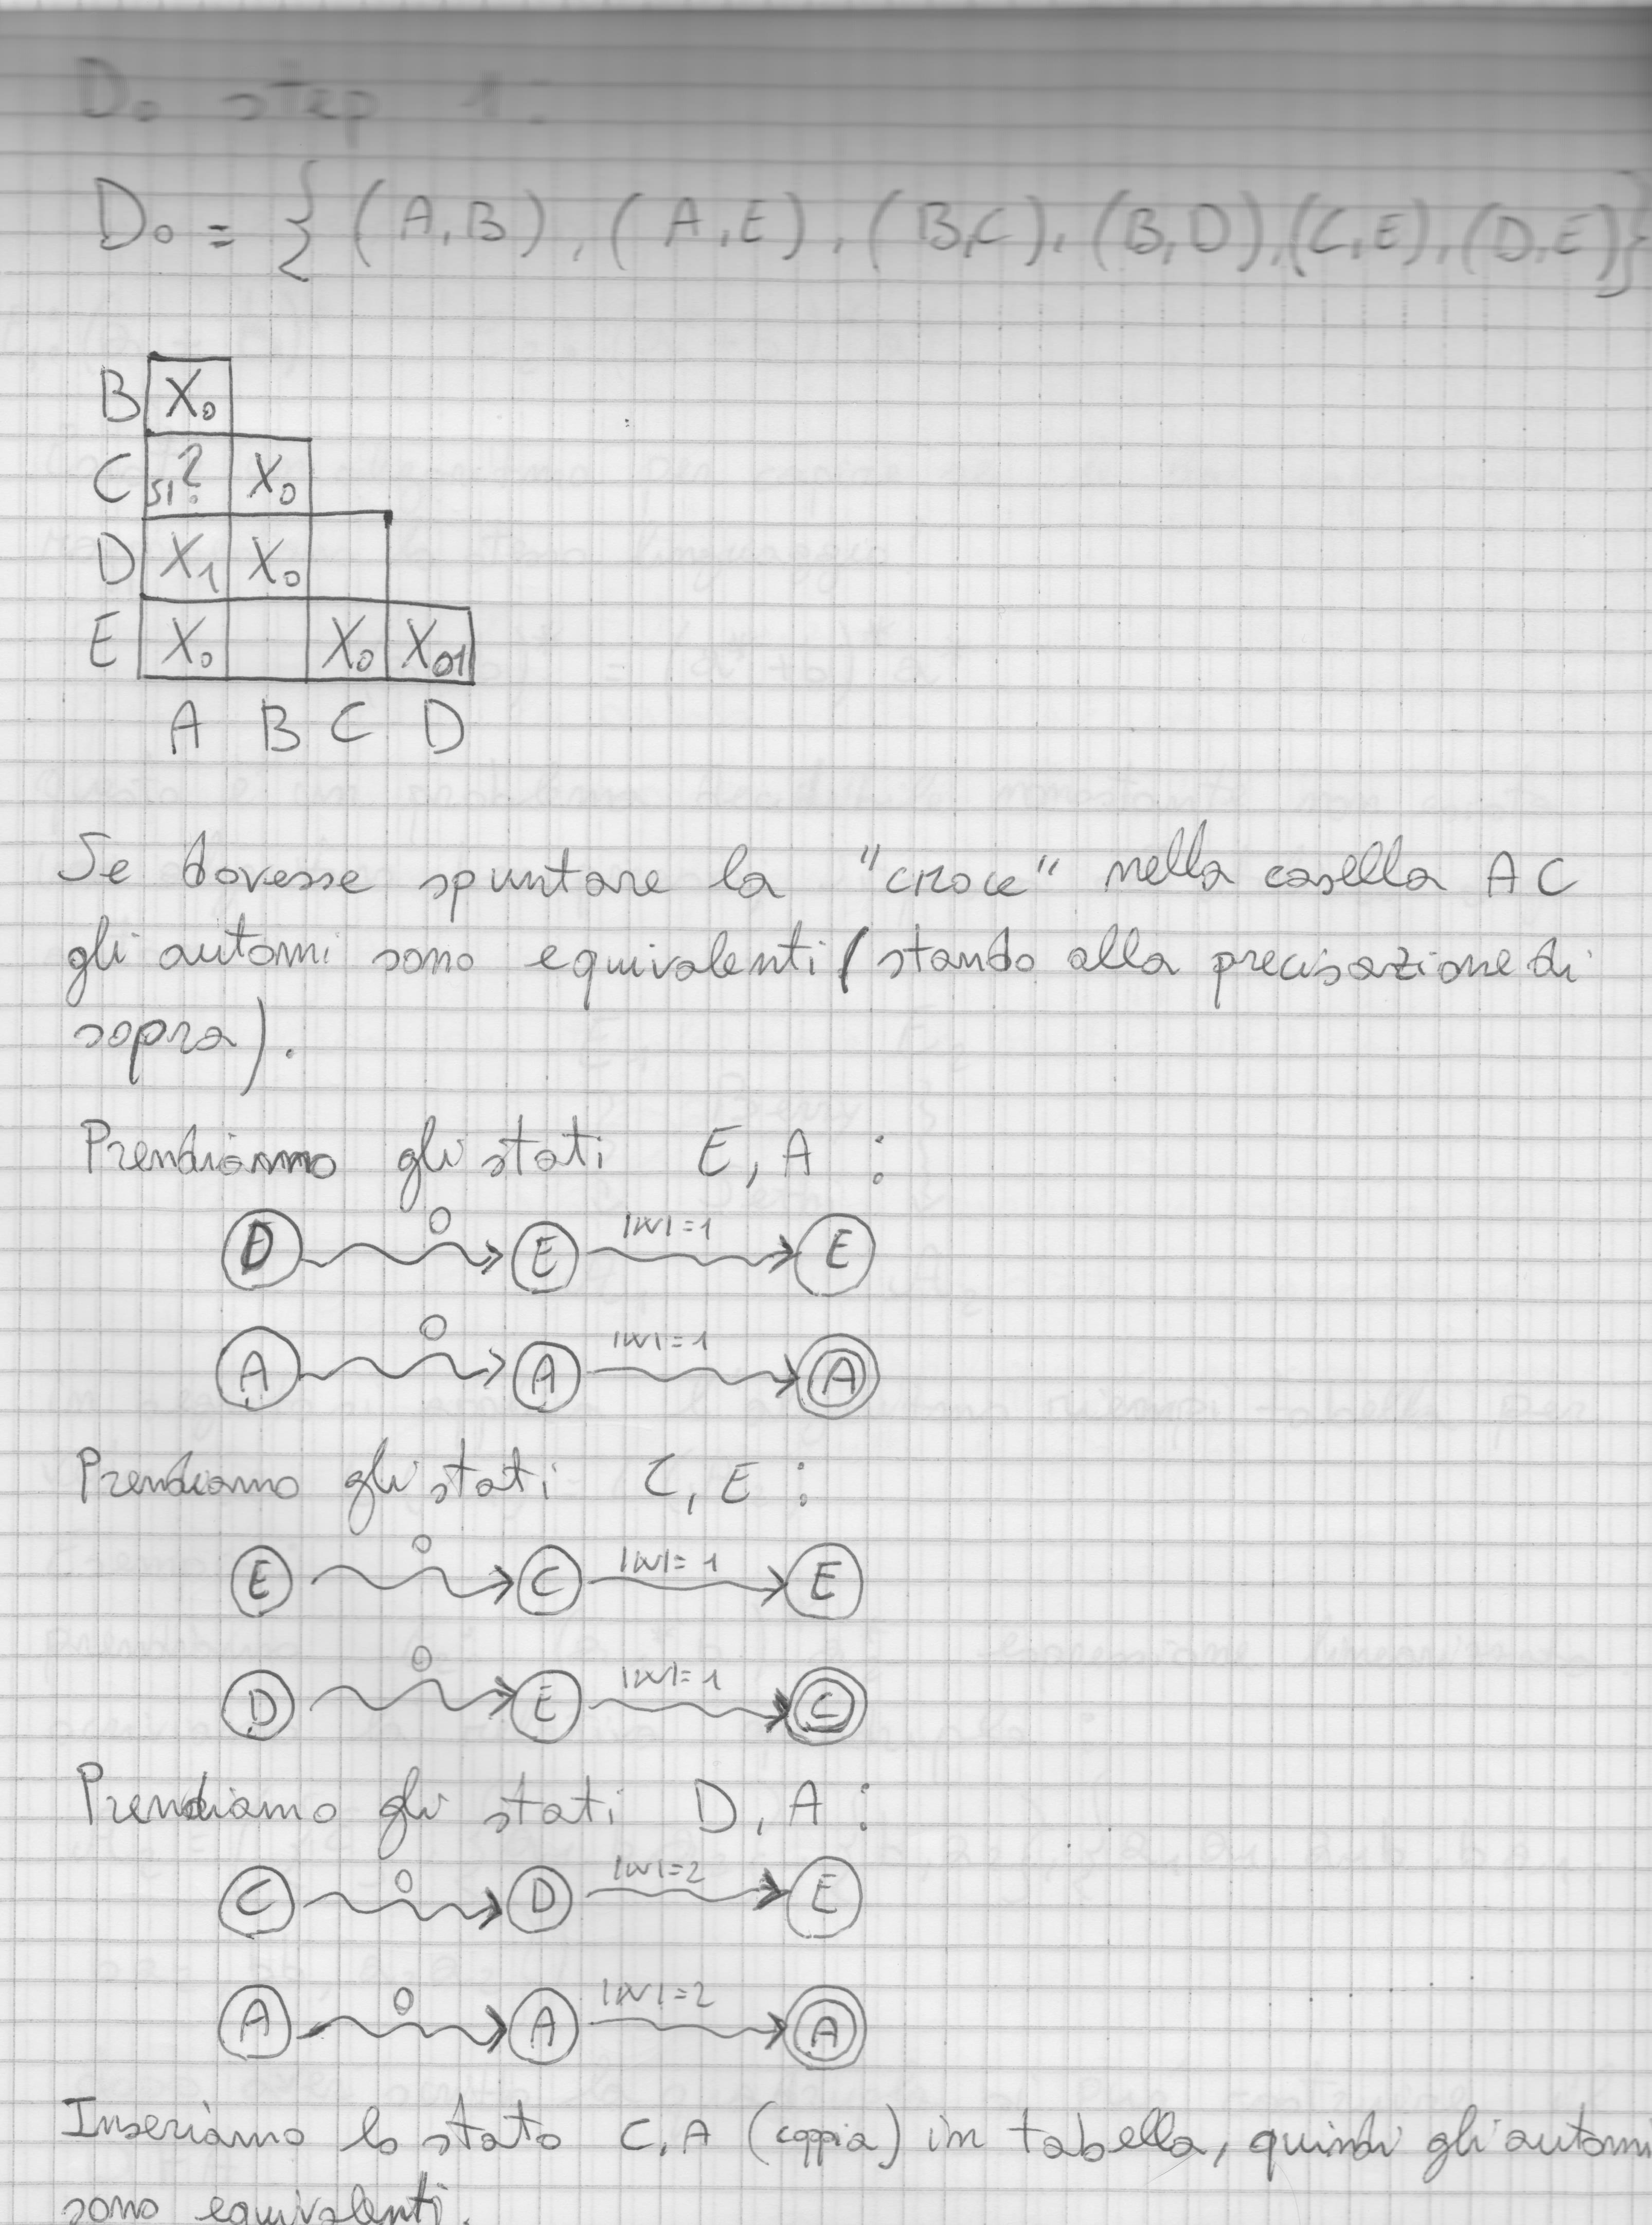 D0 step 1:
D0 = { (A,B), (A,E), (B,C), (B,D), (C,E), (D,E)}
B X0
C si? X0
D X1 X0
E X0 X0 X01
A B C D
Se dovesse spuntare la "croce" nella casella AC
gli automi sono equivalenti (stando alla precisazione di
sopra).
Prendiamo gli stati E, A :
D 0 E |w|=1 E
A 0 A |w|=1 A
Prendiamo gli stati C, E :
E 0 C |w|=1 E
D 0 E |w|=1 C
Prendiamo gli stati D, A :
C 0 D |w|=2 E
A 0 A |w|=2 A
Inseriamo lo stato C,A (coppia) in tabella, quindi gli automi
sono equivalenti.